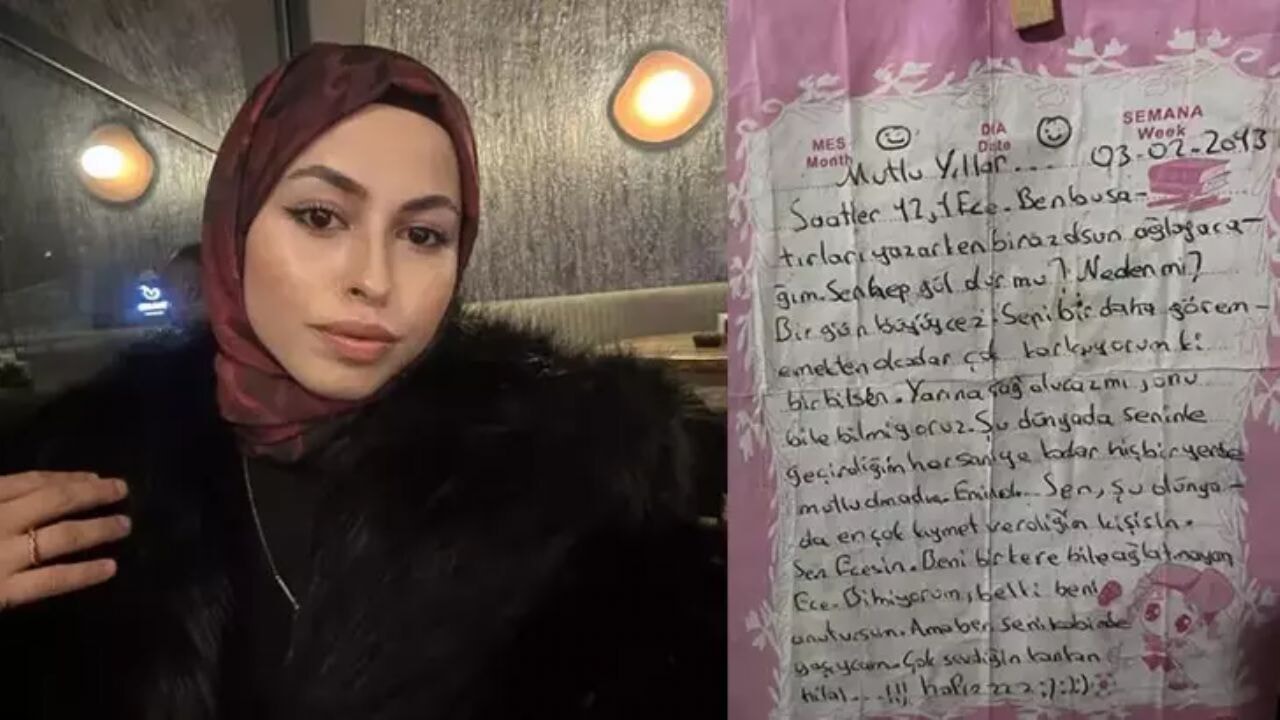 MES
Month
DIA
Date
SEMANA
Week
03-02-2013
Mutlu Yıllar...
Saatler 12,1 Ece. Ben bu sa-
tırları yazarken biraz olsun ağlayaca-
ğım. Sen hep gül dur mu? Neden mi?
Bir gün büyüycez. Seni bir daha görem-
emekten o kadar çok korkuyorum ki
bir bilsen. Yarına sağ olucazmı, onu
bile bilmiyoruz. Şu dünyada seninle
geçirdiğim her saniye kadar hiçbir yerde
mutlu olmadım. Emin ol. Sen, şu dünya-
da en çok kıymet verdiğim kişisin.
Sen Ecesin. Beni bir kere bile ağlatmayan
Ece. Bilmiyorum, belki beni
unutursun. Ama ben seni kalbimde
yaşıycam. Çok sevdiğin kankan
hilal...!!! :):):)